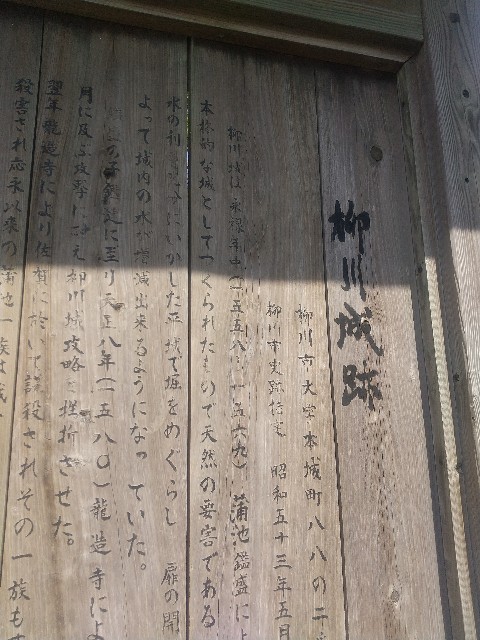 柳川城跡
柳川市大字本城町八八の二
柳川市史跡指定 昭和五十三年五月
柳川城は永禄年中(一五五八~一五六九)蒲池鑑盛によ
本格的な城としてつくられたもので天然の要害である
水の利 にいかした平城で堀をめぐらし 扉の開
よって城内の水が増減出来るようになっていた。
に至り天正八年(一五八〇)龍造寺によ
月に及ぶ攻撃に耐え柳川城攻略を挫折させた。
翌年龍造寺により佐賀に於いて謀殺されその一族も
殺害され応永以来の蒲池一族は滅